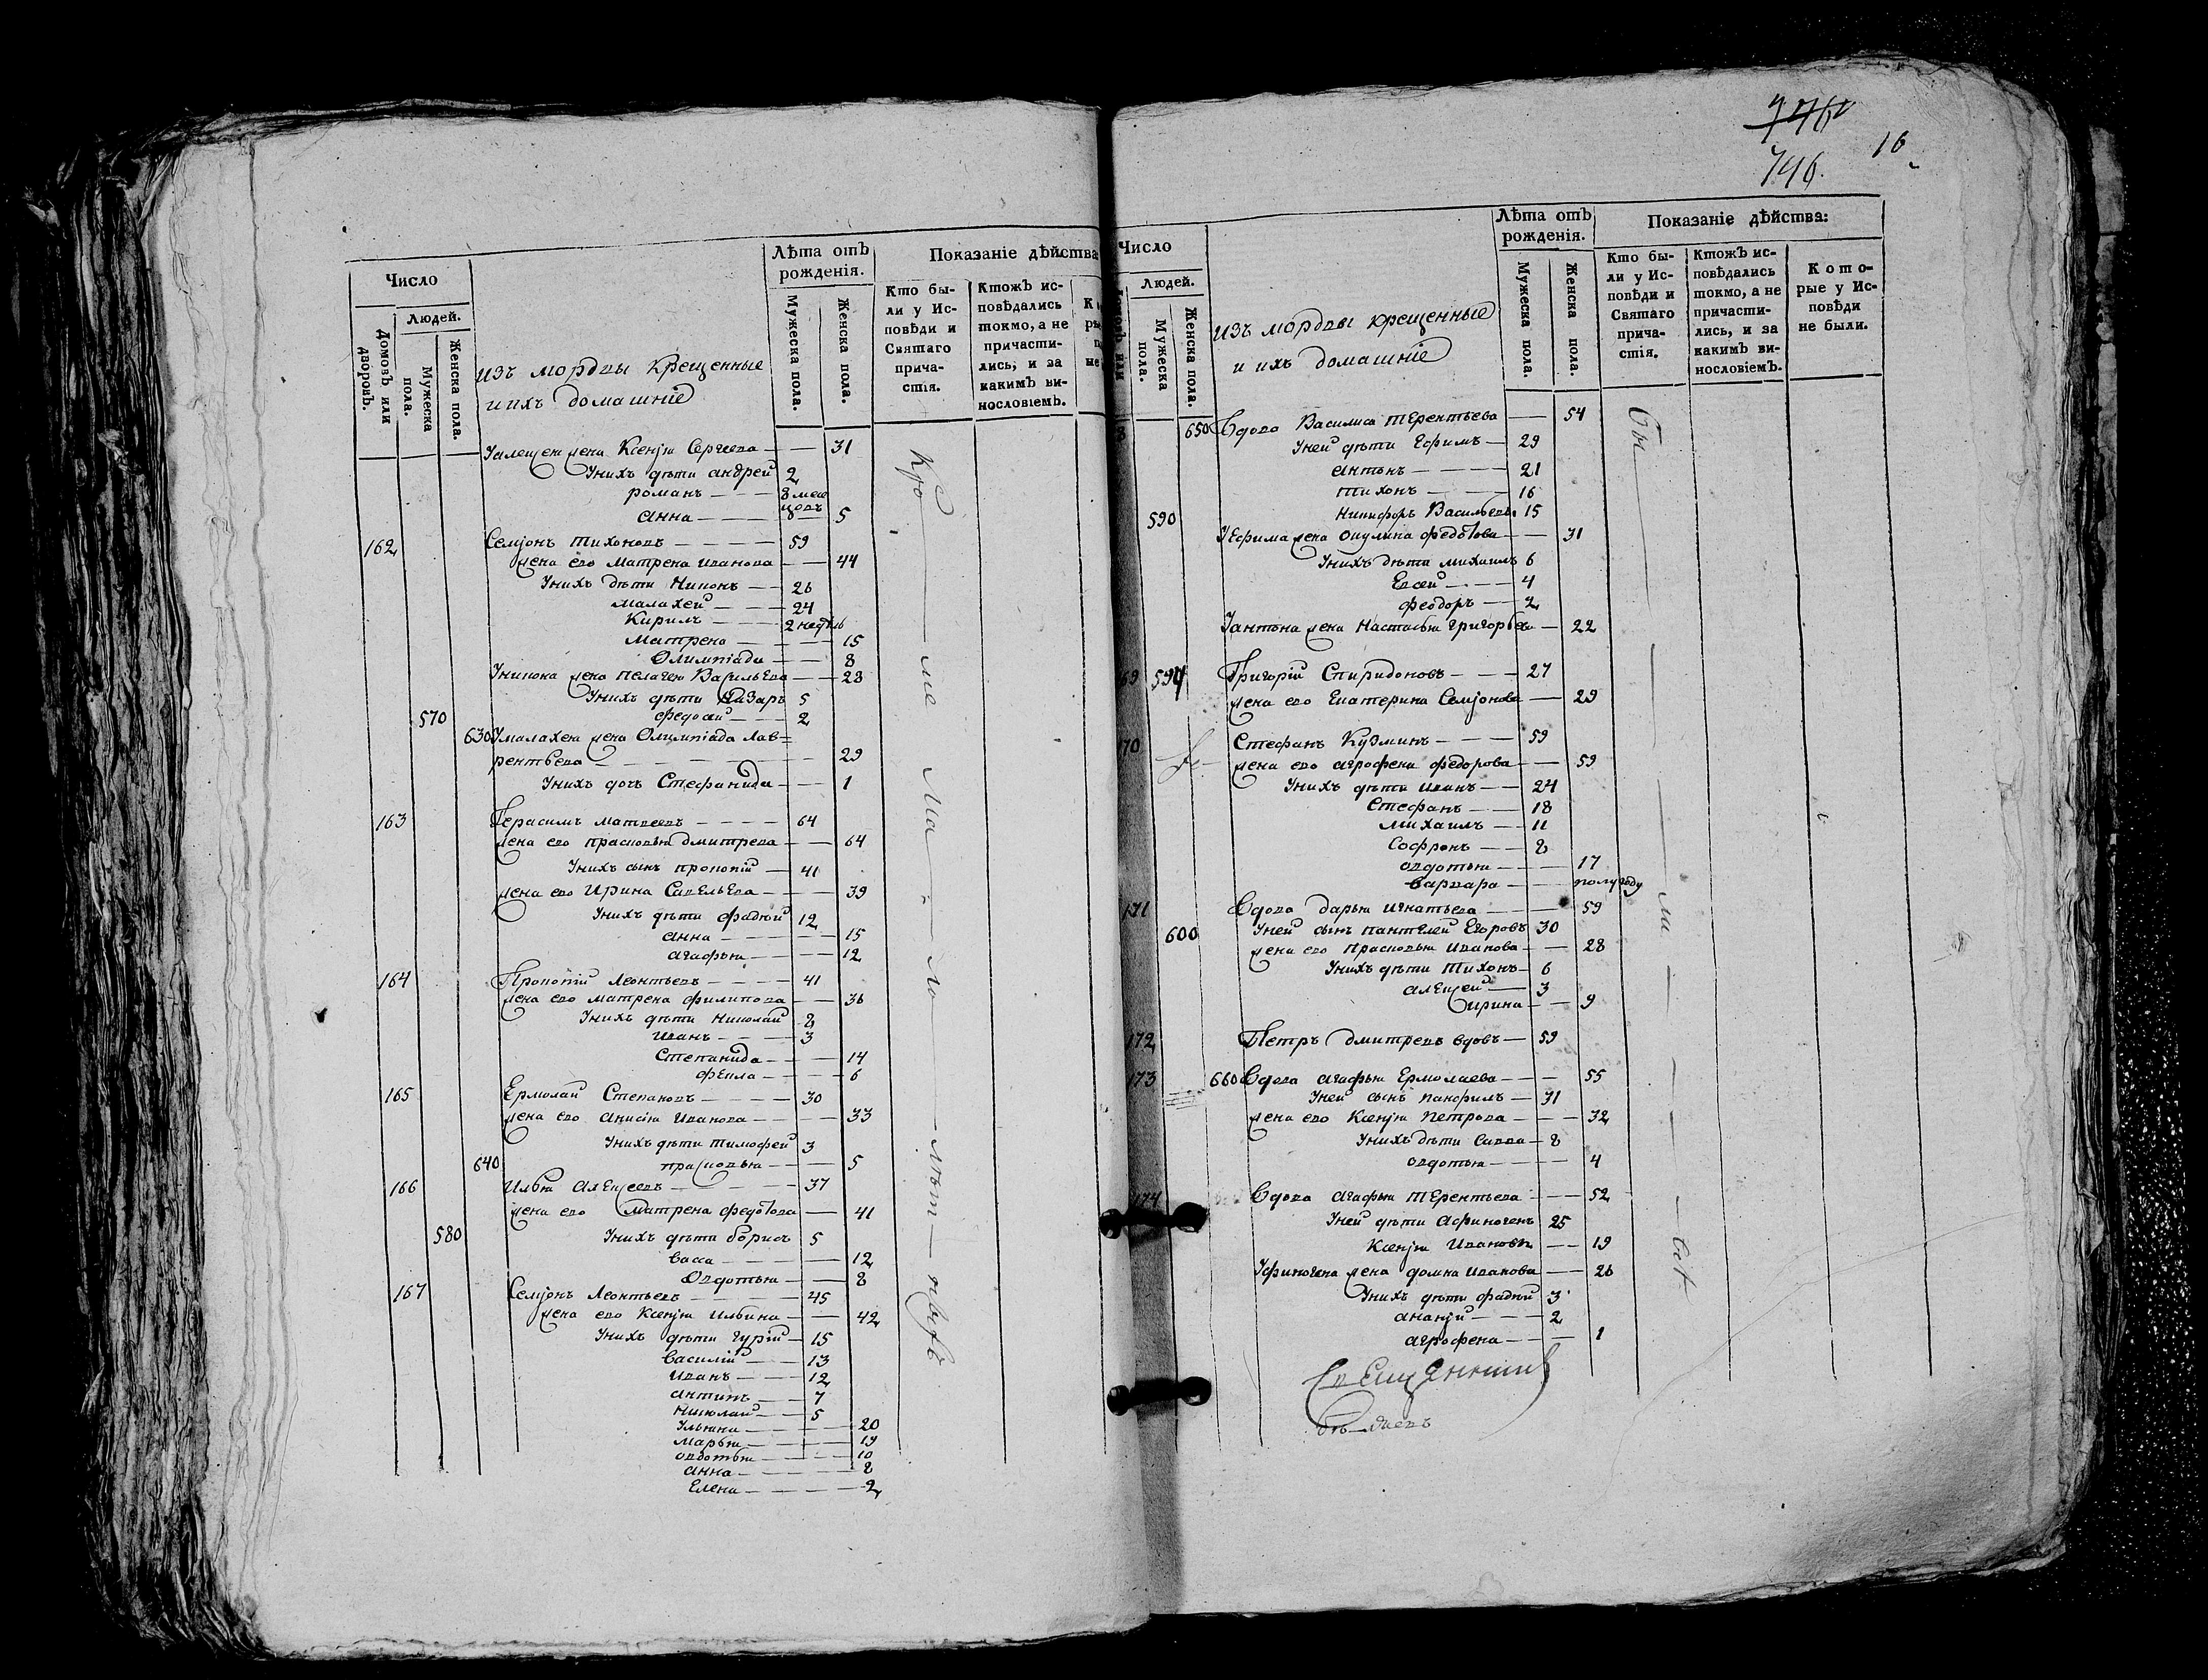 Число
Людей.
Домовъ или дворовъ.
Мужеска пола.
Женска пола.
изъ мордвы крещенные
и ихъ домашніе
Лѣта отъ рожденія.
Мужеска пола.
Женска пола.
Показаніе дѣйства
Кто были у Исповѣди и Святаго причастія.
Ктожъ исповѣдались токмо, а не причастились, и за какимъ винословіемъ.
жена Ксенія Сергеева — 31
Унихъ дѣти андрей 2
романъ — 8 месецовъ
анна — 5
162 Семіонъ тихоновъ — 59
жена ево Матрена иванова — 44
Унихъ дѣти Никонъ — 26
малахей — 24
Кирилъ — 2 недѣль
Матрена — 15
Олимпіада — 8
Уникона жена пелагея Васильева — 28
Унихъ дѣти Назаръ 5
570 федосей — 2
630 Умалахея жена Олимпіада Лав=
рентьева — 29
Унихъ дочъ Стефанида — 1
163 Герасимъ матвеевъ — 64
жена ево прасковья дмитрева — 64
Унихъ сынъ прокопій — 41
жена ево Ирина Савельева — 39
Унихъ дѣти фадѣй 12
анна — 15
агафья — 12
164 Прокопій Леонтьевъ — 41
жена ево матрена филипова — 36
Унихъ дѣти Николай 8
иванъ — 3
Степанида — 14
фекла — 6
165 Ермолай Степановъ — 30
жена ево анисія Иванова — 33
Унихъ дѣти тимофей 3
640 прасковья — 5
166 Илья алексеевъ — 37
жена ево матрена федотова — 41
580 Унихъ дѣти борисъ 5
васса — 12
Овдотья — 8
167 Семіонъ Леонтьевъ — 45
жена ево Ксенія Ильина — 42
Унихъ дѣти гурій — 15
василій — 13
иванъ — 12
антипъ — 7
Николай — 5
Ульяна — 20
марья — 19
овдотья — 10
анна — 8
Елена — 2
Кро — ме — ма — ло — лѣт —
746
16
Число
Людей.
Мужеска пола.
Женска пола.
изъ мордвы крещенные
и ихъ домашніе
Лѣта отъ рожденія.
Мужеска пола.
Женска пола.
Показаніе дѣйства:
Кто были у Исповѣди и Святаго причастія.
Ктожъ исповѣдались токмо, а не причастились, и за какимъ винословіемъ.
Которые у Исповѣди не были.
650 Вдова Василиса терентьева — 54
Уней дѣти Ефимъ — 29
антонъ — 21
тихонъ — 16
590 Никифоръ Васильевъ 15
УЕфима жена окулина федотова — 31
Унихъ дѣти михаилъ 6
Евсей — 4
феодоръ — 2
Уантона жена Настасья григорьева — 22
69 594 Григорій Спиридоновъ — 27
жена ево Екатерина Семіонова — 29
170 Стефанъ Кузминъ — 59
жена ево агрофена федорова — 59
Унихъ дѣти иванъ — 24
Стефанъ — 18
михаилъ — 11
Софронъ — 8
овдотья — 17
варвара — полугоду
171 Вдова дарья игнатьева — 59
600 Уней сынъ пантелей Егоровъ 30
жена ево прасковья иванова — 28
Унихъ дѣти тихонъ — 6
алексей — 3
ирина — 9
172 Петръ дмитревъ вдовъ — 59
173 660 Вдова агафья Ермолаева — 55
Уней сынъ панфилъ — 31
жена ево Ксенія петрова — 32
Унихъ дѣти Савва — 8
овдотья — 4
174 Вдова агафья терентьева — 52
Уней дѣти афиногенъ 25
Ксенія Ивановы — 19
Уфиногена жена домна иванова — 26
Унихъ дѣти фадѣй 3
ананій — 2
агрофена — 1